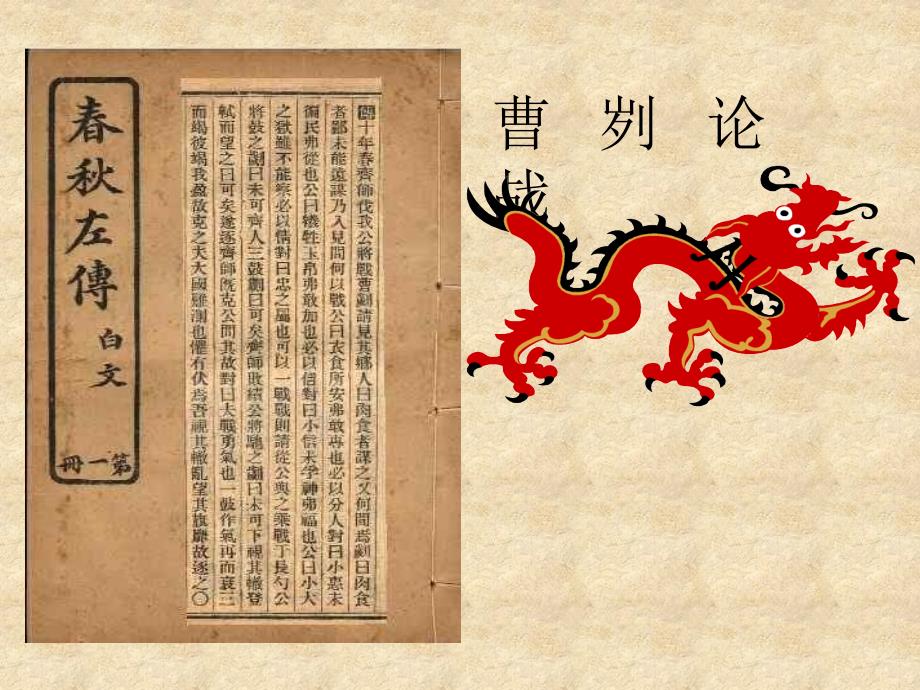 春秋左傳
白文
第一冊
傳十年春齊師伐我公將戰曹劌請見其鄉人曰肉食者謀之又何間焉劌曰肉食
者鄙未能遠謀乃入見問何以戰公曰衣食所安弗敢專也必以分人對曰小惠未
徧民弗從也公曰犧牲玉帛弗敢加也必以信對曰小信未孚神弗福也公曰小大
之獄雖不能察必以情對曰忠之屬也可以一戰戰則請從公與之乘戰于長勺公
將鼓之劌曰未可齊人三鼓劌曰可矣齊師敗績公將馳之劌曰未可下視其轍登
軾而望之曰可矣遂逐齊師既克公問其故對曰夫戰勇氣也一鼓作氣再而衰三
而竭彼竭我盈故克之夫大國難測也懼有伏焉吾視其轍亂望其旗靡故逐之〇
曹 刿 论
战